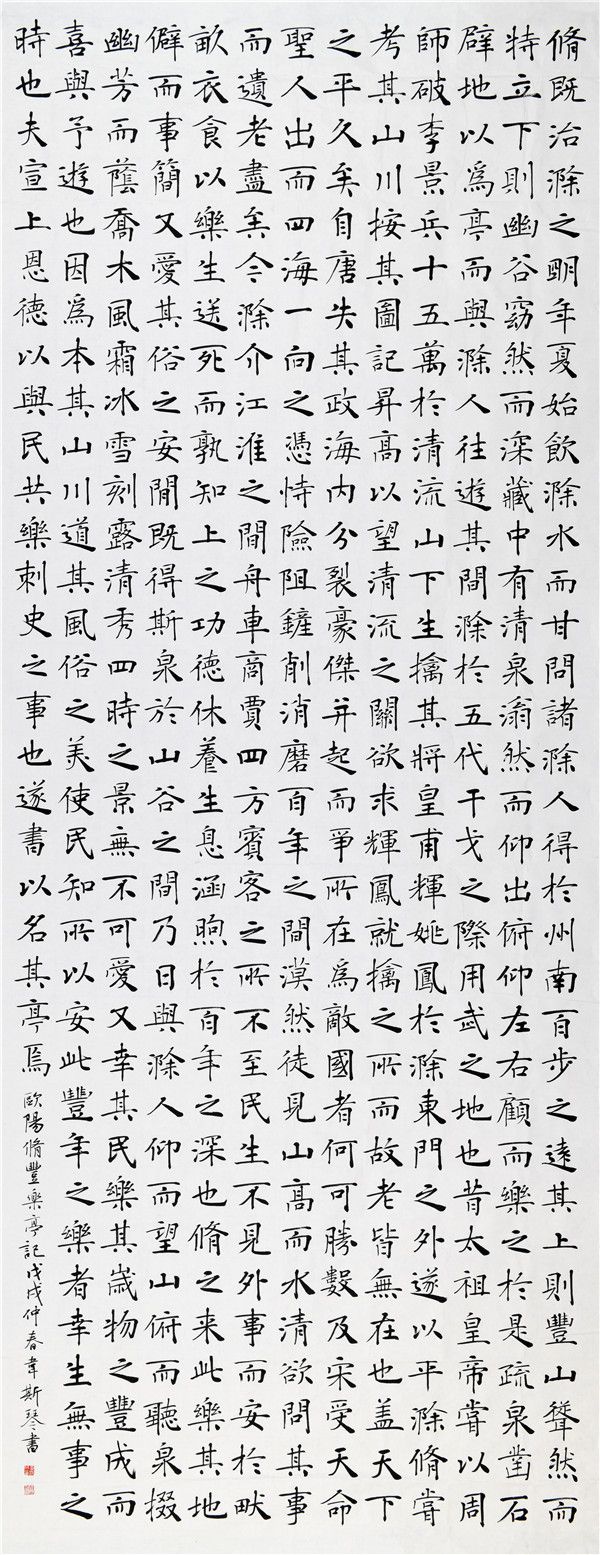 脩既治滁之明年夏始飲滁水而甘問諸滁人得於州南百步之遠其上則豐山聳然而
特立下則幽谷窈然而深藏中有清泉滃然而仰出俯仰左右顧而樂之於是疏泉鑿石
辟地以爲亭而與滁人往遊其間滁於五代干戈之際用武之地也昔太祖皇帝嘗以周
師破李景兵十五萬於清流山下生擒其將皇甫輝姚鳳於滁東門之外遂以平滁脩嘗
考其山川按其圖記昇高以望清流之關欲求輝鳳就擒之所而故老皆無在也盖天下
之平久矣自唐失其政海内分裂豪傑并起而爭所在爲敵國者何可勝數及宋受天命
聖人出而四海一向之憑恃險阻鏟削消磨百年之間漠然徒見山高而水清欲問其事
而遺老盡矣今滁介江淮之間舟車商賈四方賓客之所不至民生不見外事而安於畎
畝衣食以樂生送死而孰知上之功德休養生息涵煦於百年之深也脩之来此樂其地
僻而事簡又愛其俗之安閒既得斯泉於山谷之間乃日與滁人仰而望山俯而聽泉掇
幽芳而蔭喬木風霜冰雪刻露清秀四時之景無不可愛又幸其民樂其歲物之豐成而
喜與予遊也因爲本其山川道其風俗之美使民知所以安此豐年之樂者幸生無事之
時也夫宣上恩德以與民共樂刺史之事也遂書以名其亭焉
歐陽脩豐樂亭記戊戌仲春韋斯琴書